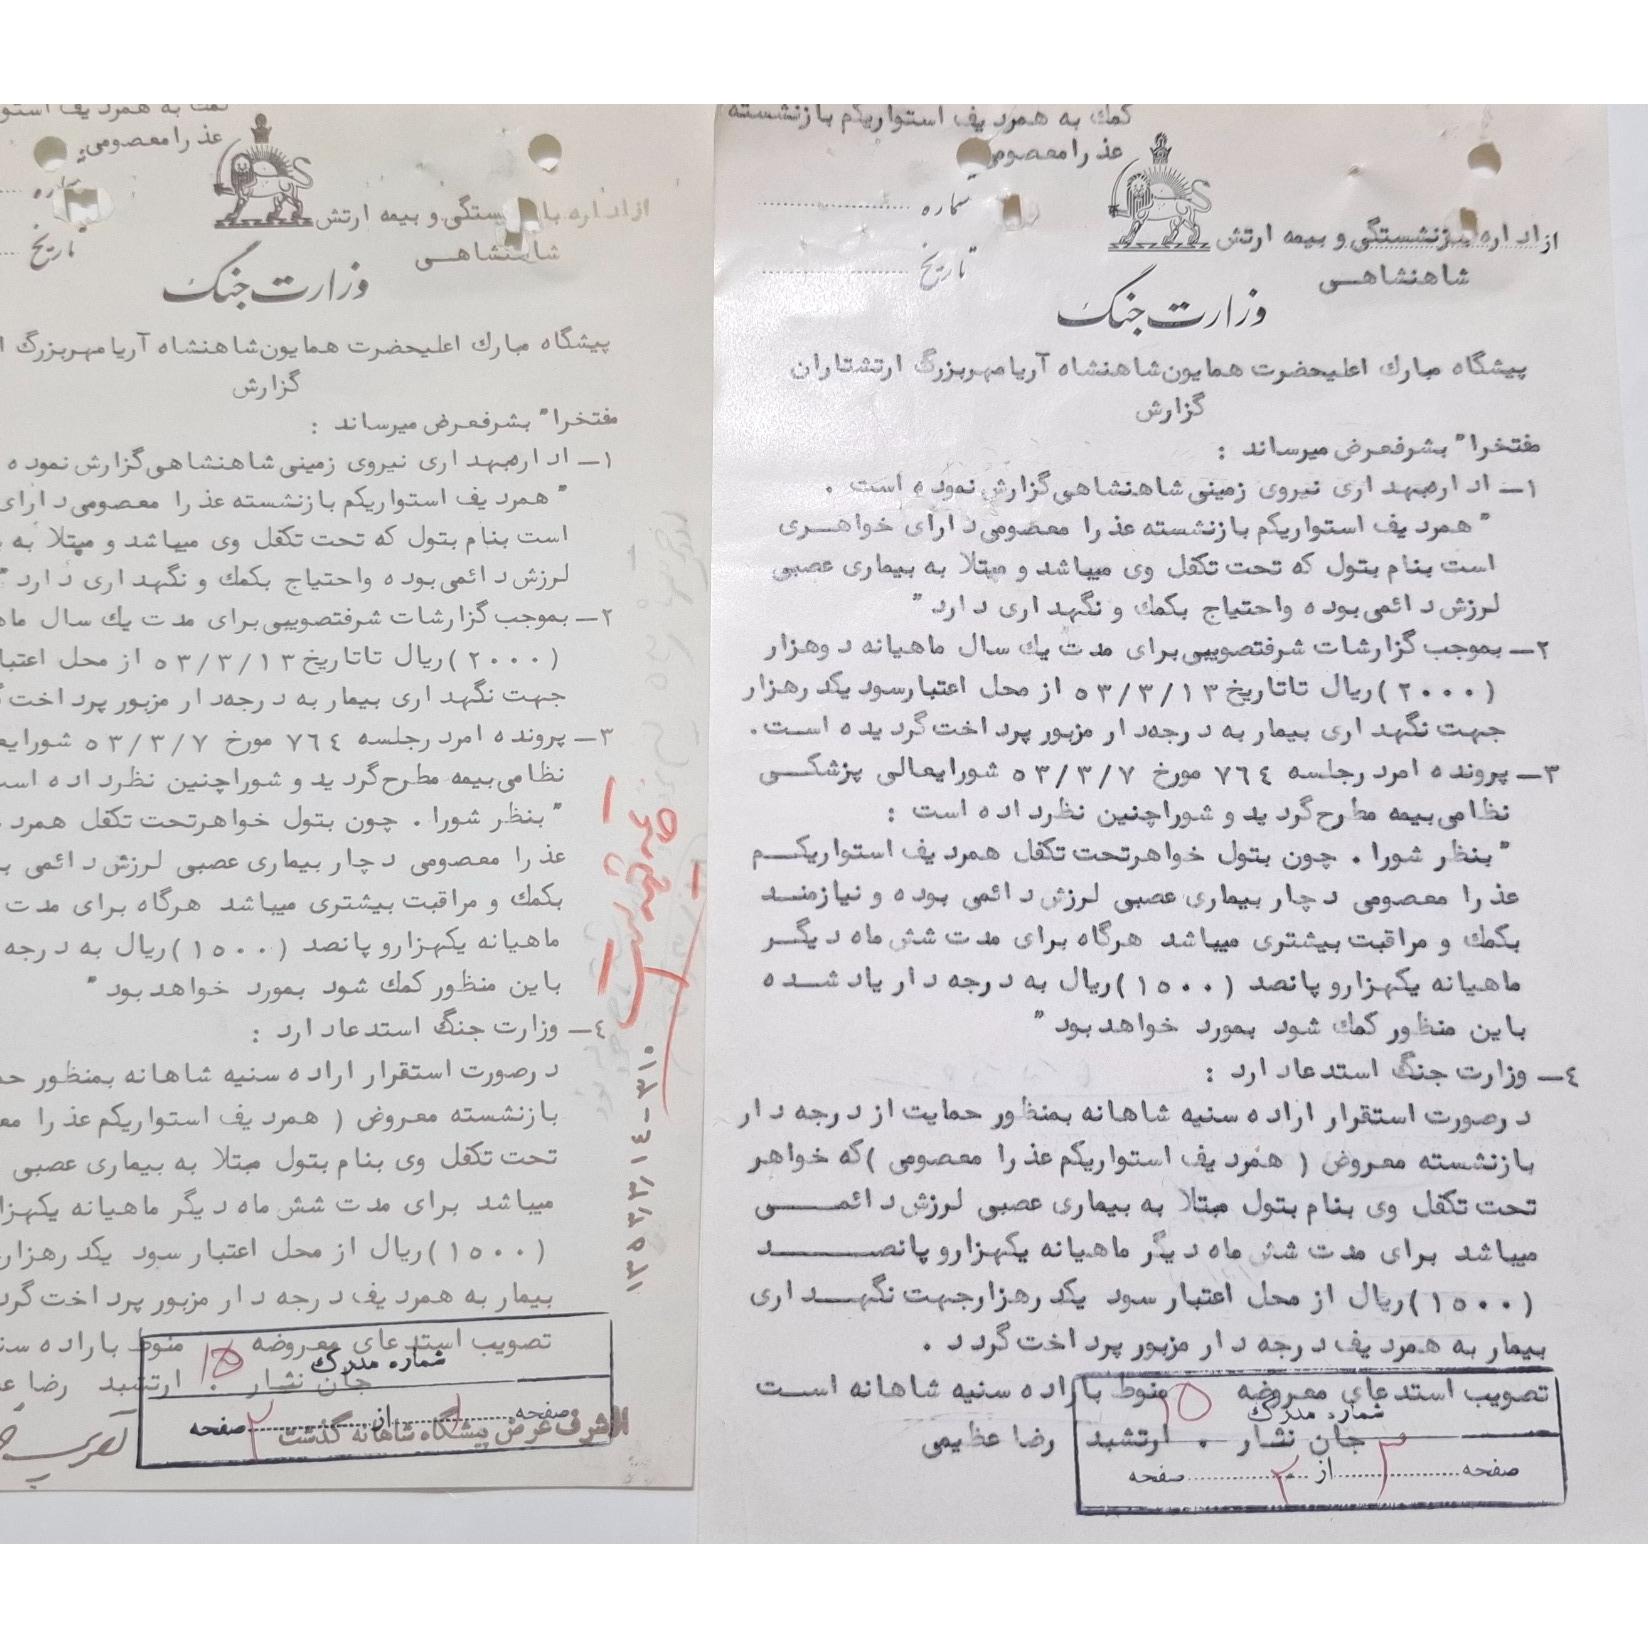 كمك به همرديف استواريكم بازنشسته
عذرا معصومى
شماره
تاريخ
از اداره بازنشستگى و بيمه ارتش
شاهنشاهى
وزارت جنگ
پيشگاه مبارك اعليحضرت همايون شاهنشاه آريامهر بزرگ ارتشتاران
گزارش
مفتخرا" بشرفعرض ميرساند :
۱- اداره بهدارى نيروى زمينى شاهنشاهى گزارش نموده است .
" همرديف استواريكم بازنشسته عذرا معصومى داراى خواهرى
است بنام بتول كه تحت تكفل وى ميباشد و مبتلا به بيمارى عصبى
لرزش دائمى بوده و احتياج بكمك و نگهدارى دارد "
۲- بموجب گزارشات شرفتصويبى براى مدت يك سال ماهيانه دوهزار
(۲۰۰۰) ريال تا تاريخ ۵۳/۳/۱۳ از محل اعتبار سود يكدرهزار
جهت نگهدارى بيمار به درجه‌دار مزبور پرداخت گرديده است .
۳- پرونده امر در جلسه ۷٦٤ مورخ ۵۳/۳/۷ شورايعالى پزشكى
نظامى بيمه مطرح گرديد و شورا چنين نظر داده است :
" بنظر شورا . چون بتول خواهر تحت تكفل همرديف استواريكم
عذرا معصومى دچار بيمارى عصبى لرزش دائمى بوده و نيازمند
بكمك و مراقبت بيشترى ميباشد هرگاه براى مدت شش ماه ديگر
ماهيانه يكهزار و پانصد (۱۵۰۰) ريال به درجه دار ياد شده
باين منظور كمك شود بمورد خواهد بود "
٤- وزارت جنگ استدعا دارد :
در صورت استقرار اراده سنيه شاهانه بمنظور حمايت از درجه دار
بازنشسته معروض ( همرديف استواريكم عذرا معصومى ) كه خواهر
تحت تكفل وى بنام بتول مبتلا به بيمارى عصبى لرزش دائمى
ميباشد براى مدت شش ماه ديگر ماهيانه يكهزار و پانصد
(۱۵۰۰) ريال از محل اعتبار سود يكدرهزار جهت نگهدارى
بيمار به همرديف درجه دار مزبور پرداخت گردد .
تصويب استدعاى معروضه منوط باراده سنيه شاهانه است
جان نثار . ارتشبد رضا عظيمى
شماره مدرك ۱۵
صفحه ۲ از ۲ صفحه
كمك به همرديف استو
عذرا معصومى
شماره
تاريخ
از اداره بازنشستگى و بيمه ارتش
شاهنشاهى
وزارت جنگ
پيشگاه مبارك اعليحضرت همايون شاهنشاه آريامهر بزرگ ا
گزارش
مفتخرا" بشرفعرض ميرساند :
۱- اداره بهدارى نيروى زمينى شاهنشاهى گزارش نموده
" همرديف استواريكم بازنشسته عذرا معصومى داراى
است بنام بتول كه تحت تكفل وى ميباشد و مبتلا به
لرزش دائمى بوده و احتياج بكمك و نگهدارى دارد "
۲- بموجب گزارشات شرفتصويبى براى مدت يك سال ماه
(۲۰۰۰) ريال تا تاريخ ۵۳/۳/۱۳ از محل اعتبا
جهت نگهدارى بيمار به درجه‌دار مزبور پرداخت
۳- پرونده امر در جلسه ۷٦٤ مورخ ۵۳/۳/۷ شورايع
نظامى بيمه مطرح گرديد و شورا چنين نظر داده است
" بنظر شورا . چون بتول خواهر تحت تكفل همرد
عذرا معصومى دچار بيمارى عصبى لرزش دائمى ب
بكمك و مراقبت بيشترى ميباشد هرگاه براى مدت
ماهيانه يكهزار و پانصد (۱۵۰۰) ريال به درجه
باين منظور كمك شود بمورد خواهد بود "
٤- وزارت جنگ استدعا دارد :
در صورت استقرار اراده سنيه شاهانه بمنظور حم
بازنشسته معروض ( همرديف استواريكم عذرا مع
تحت تكفل وى بنام بتول مبتلا به بيمارى عصبى
ميباشد براى مدت شش ماه ديگر ماهيانه يكهزا
(۱۵۰۰) ريال از محل اعتبار سود يكدرهزار
بيمار به همرديف درجه دار مزبور پرداخت گرد
تصويب استدعاى معروضه منوط باراده سن
جان نثار . ارتشبد رضا ع
شماره مدرك ۱۵
صفحه ۱ از ۲ صفحه
از شرف عرض پيشگاه شاهانه گذشت
۱۳۵۳/۳/۱٤-۳۱۰